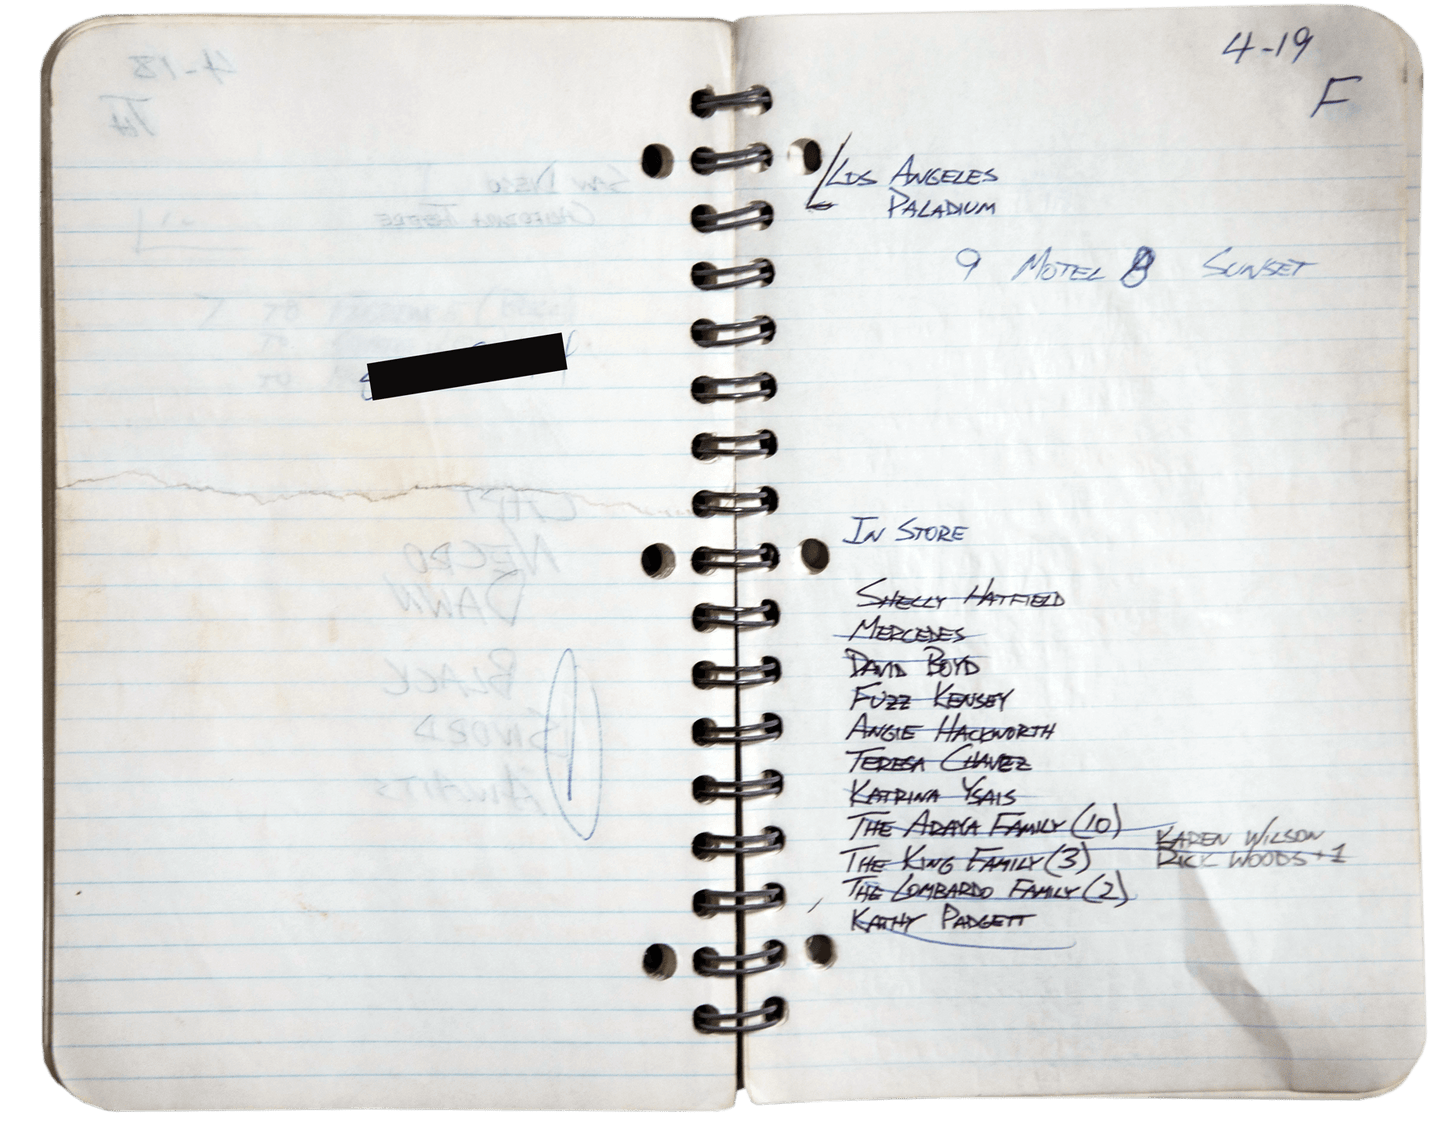 4-19
F
LOS ANGELES
PALADIUM
9 MOTEL 8 SUNSET
IN STORE
SHELLY HATFIELD
MERCEDES
DAVID BOYD
FUZZ KENSEY
ANGIE HACKWORTH
TERESA CHAVEZ
KATRINA YSAIS
THE ADAYA FAMILY (10)
KAREN WILSON
THE KING FAMILY (3)
RICK WOODS +1
THE LOMBARDO FAMILY (2)
KATHY PADGETT